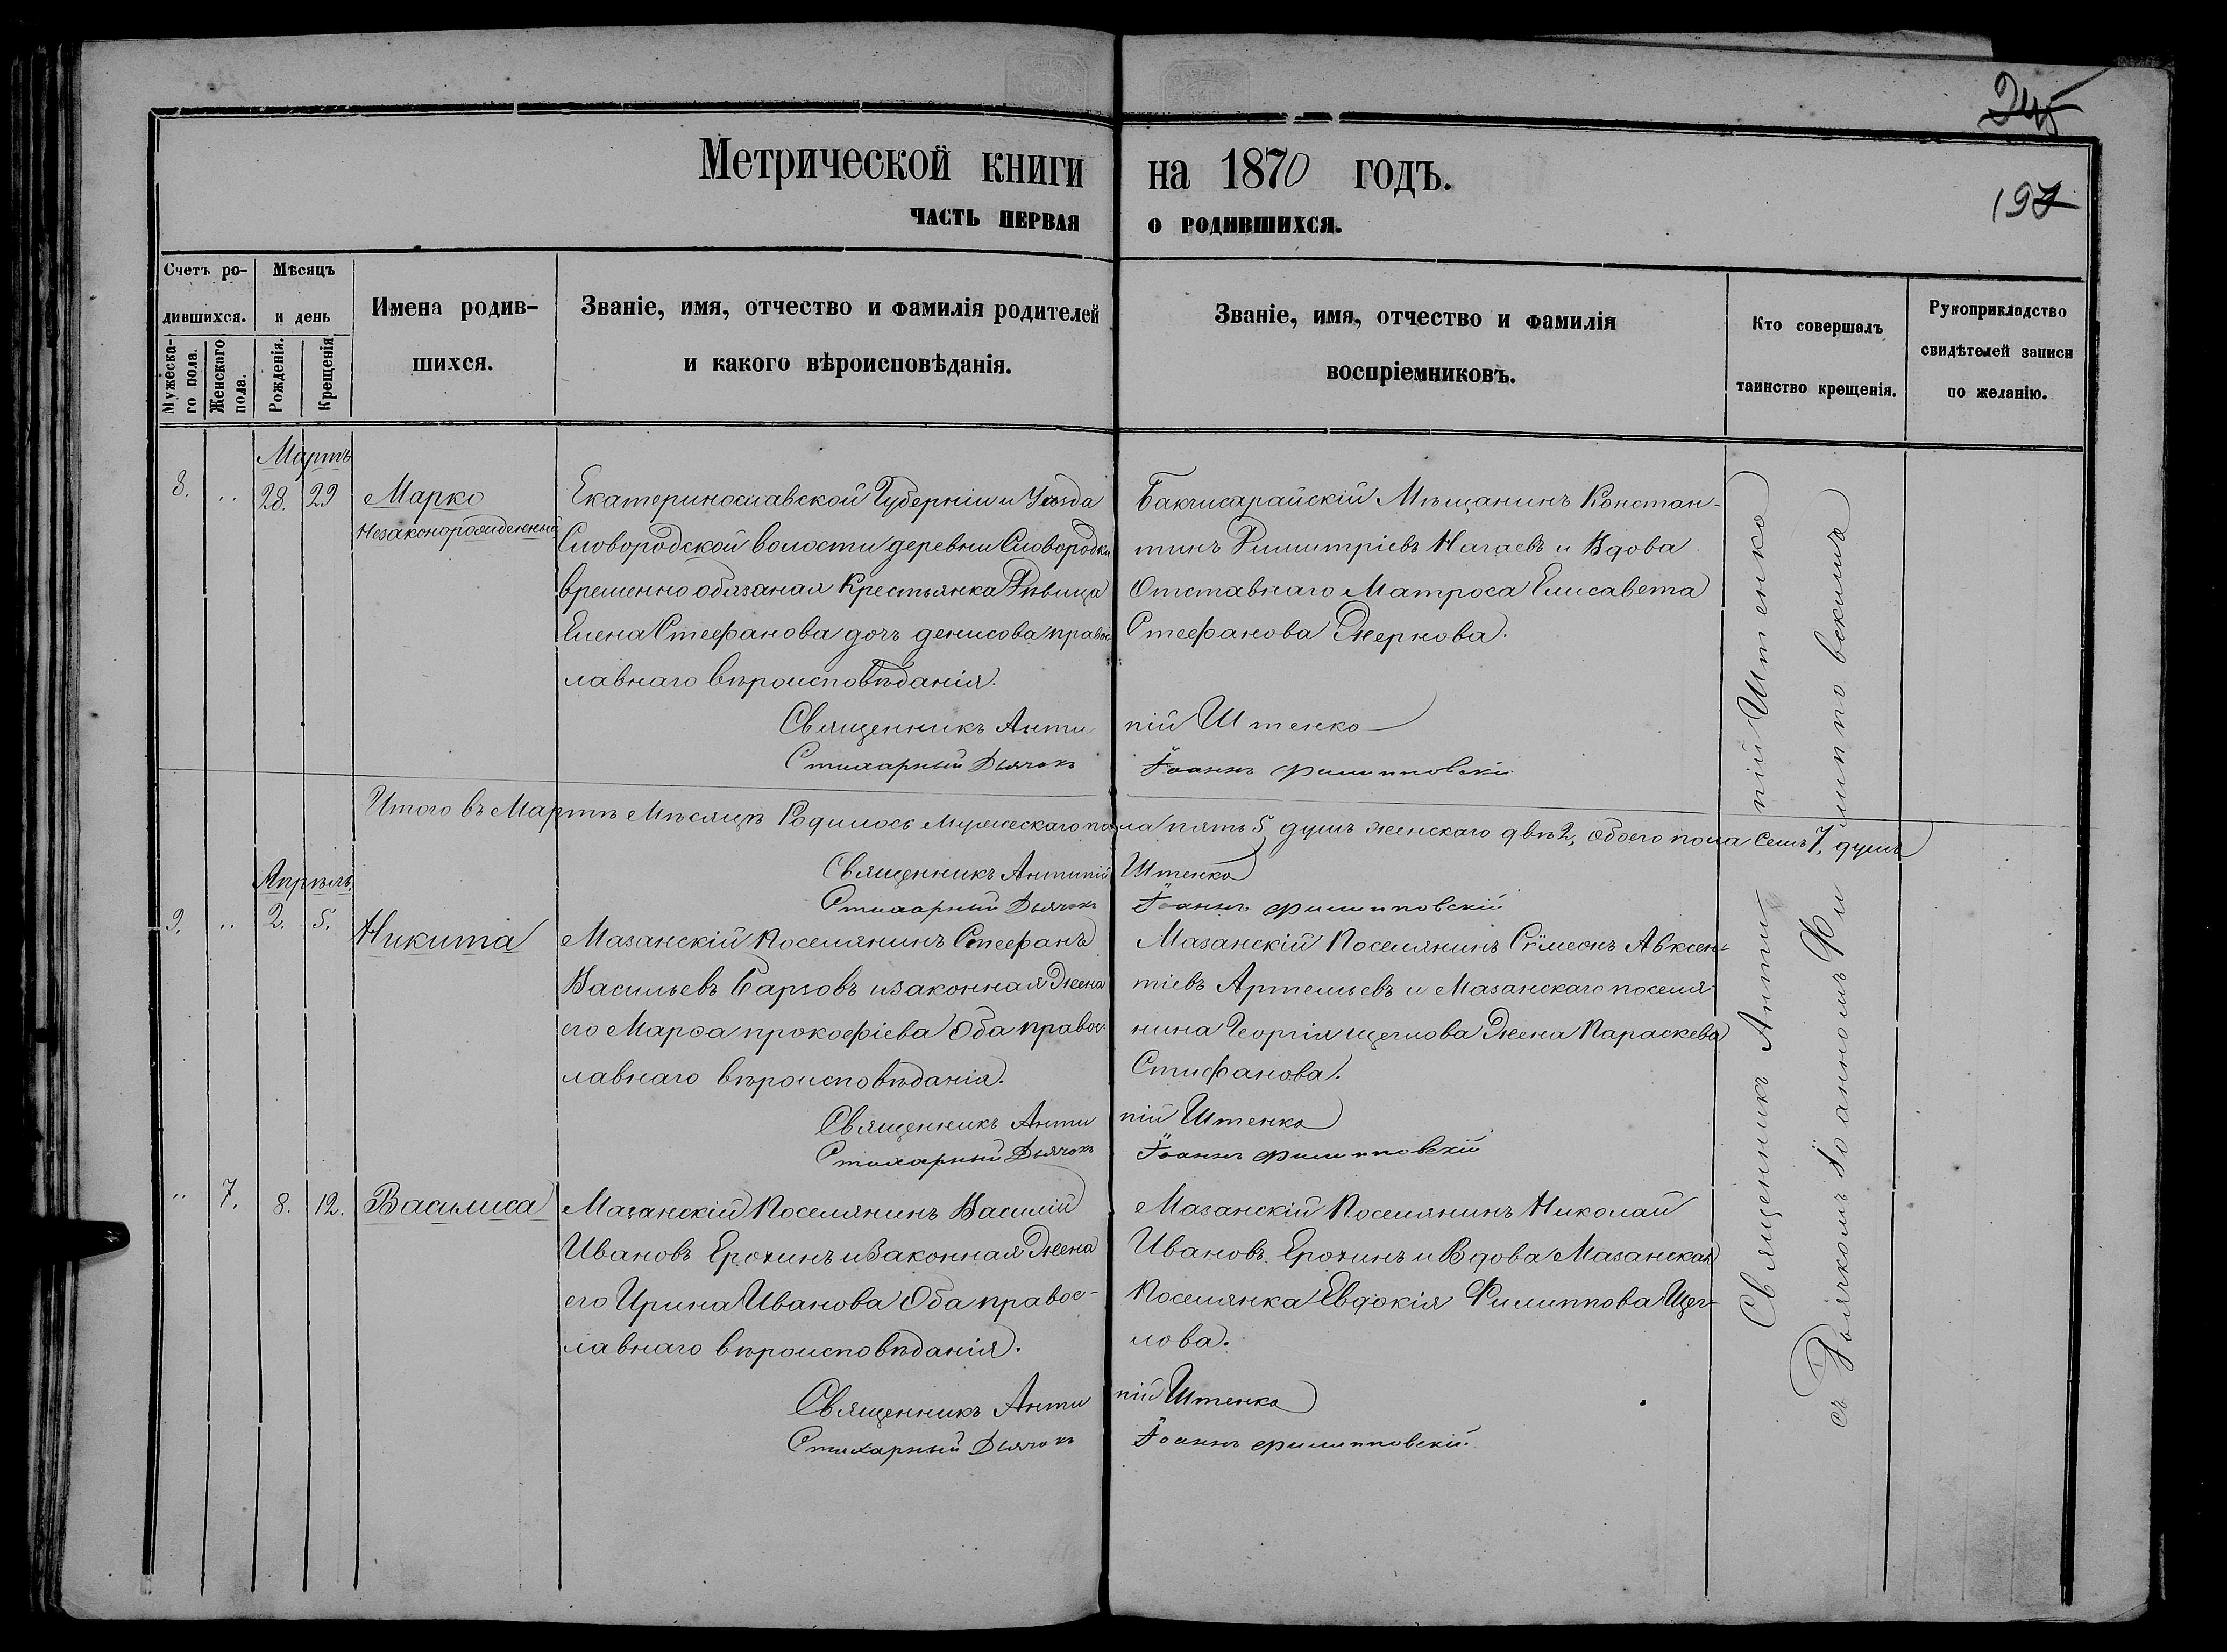 245
Метрической книги на 1870 годъ.
197
ЧАСТЬ ПЕРВАЯ О РОДИВШИХСЯ.
Счетъ родившихся.
Мужескаго пола.
Женскаго пола.
Мѣсяцъ и день
Рожденія.
Крещенія
Имена родив-
шихся.
Званіе, имя, отчество и фамилія родителей
и какого вѣроисповѣданія.
Званіе, имя, отчество и фамилія
воспріемниковъ.
Кто совершалъ
таинство крещенія.
Рукоприкладство
свидѣтелей записи
по желанію.
Мартъ
8. .. 28. 29 Марко
Незаконорожденный
Екатеринославской Губерніи и Уѣзда
Сковородской волости деревни Сковородки
временно обязаная Крестьянка Дѣвица
Елена Стефанова дочь денисова правос
лавнаго вѣроисповѣданія.
Бакчисарайскій Мѣщанинъ Констан-
тинъ Димитріевъ Нагаевъ и Вдова
Отставнаго Матроса Елисавета
Стефанова Жернова.
Священникъ Антипій Штенко
Стихарный Дьячокъ Іоаннъ Филипповскій
Итого въ Мартѣ Мѣсяцѣ Родилось Мужескаго пола пять 5, душъ женскаго двѣ 2, Обоего пола Семь 7, душъ
Священникъ Антипій Штенко
Стихарный Дьячокъ Іоаннъ Филипповскій
Апрѣль
9. .. 2. 5. Никита
Мазанскій Поселянинъ Стефанъ
Васильевъ Барзовъ и законная Жена
его Марфа прокофіева Оба правос-
лавнаго вѣроисповѣданія.
Мазанскій Поселянинъ Сѵмеонъ Авксен-
тіевъ Артемьевъ и Мазанскаго поселя-
нина Георгія щеглова Жена Параскева
Стифанова.
Священникъ Антипій Штенко
Стихарный Дьячокъ Іоаннъ Филипповскій
.. 7. 8. 12. Василиса
Мазанскій Поселянинъ Василій
Ивановъ Ерохинъ и Законная Жена
его Ирина Иванова Оба правос-
лавнаго вѣроисповѣданія.
Мазанскій Поселянинъ Николай
Ивановъ Ерохинъ и Вдова Мазанская
Поселянка Евдокія Филиппова Щег-
лова.
Священникъ Антипій Штенко
Стихарный Дьячокъ Іоаннъ Филипповскій
Священникъ Антипій Штенко
съ Дьячкомъ Іоанномъ Филипповскимъ